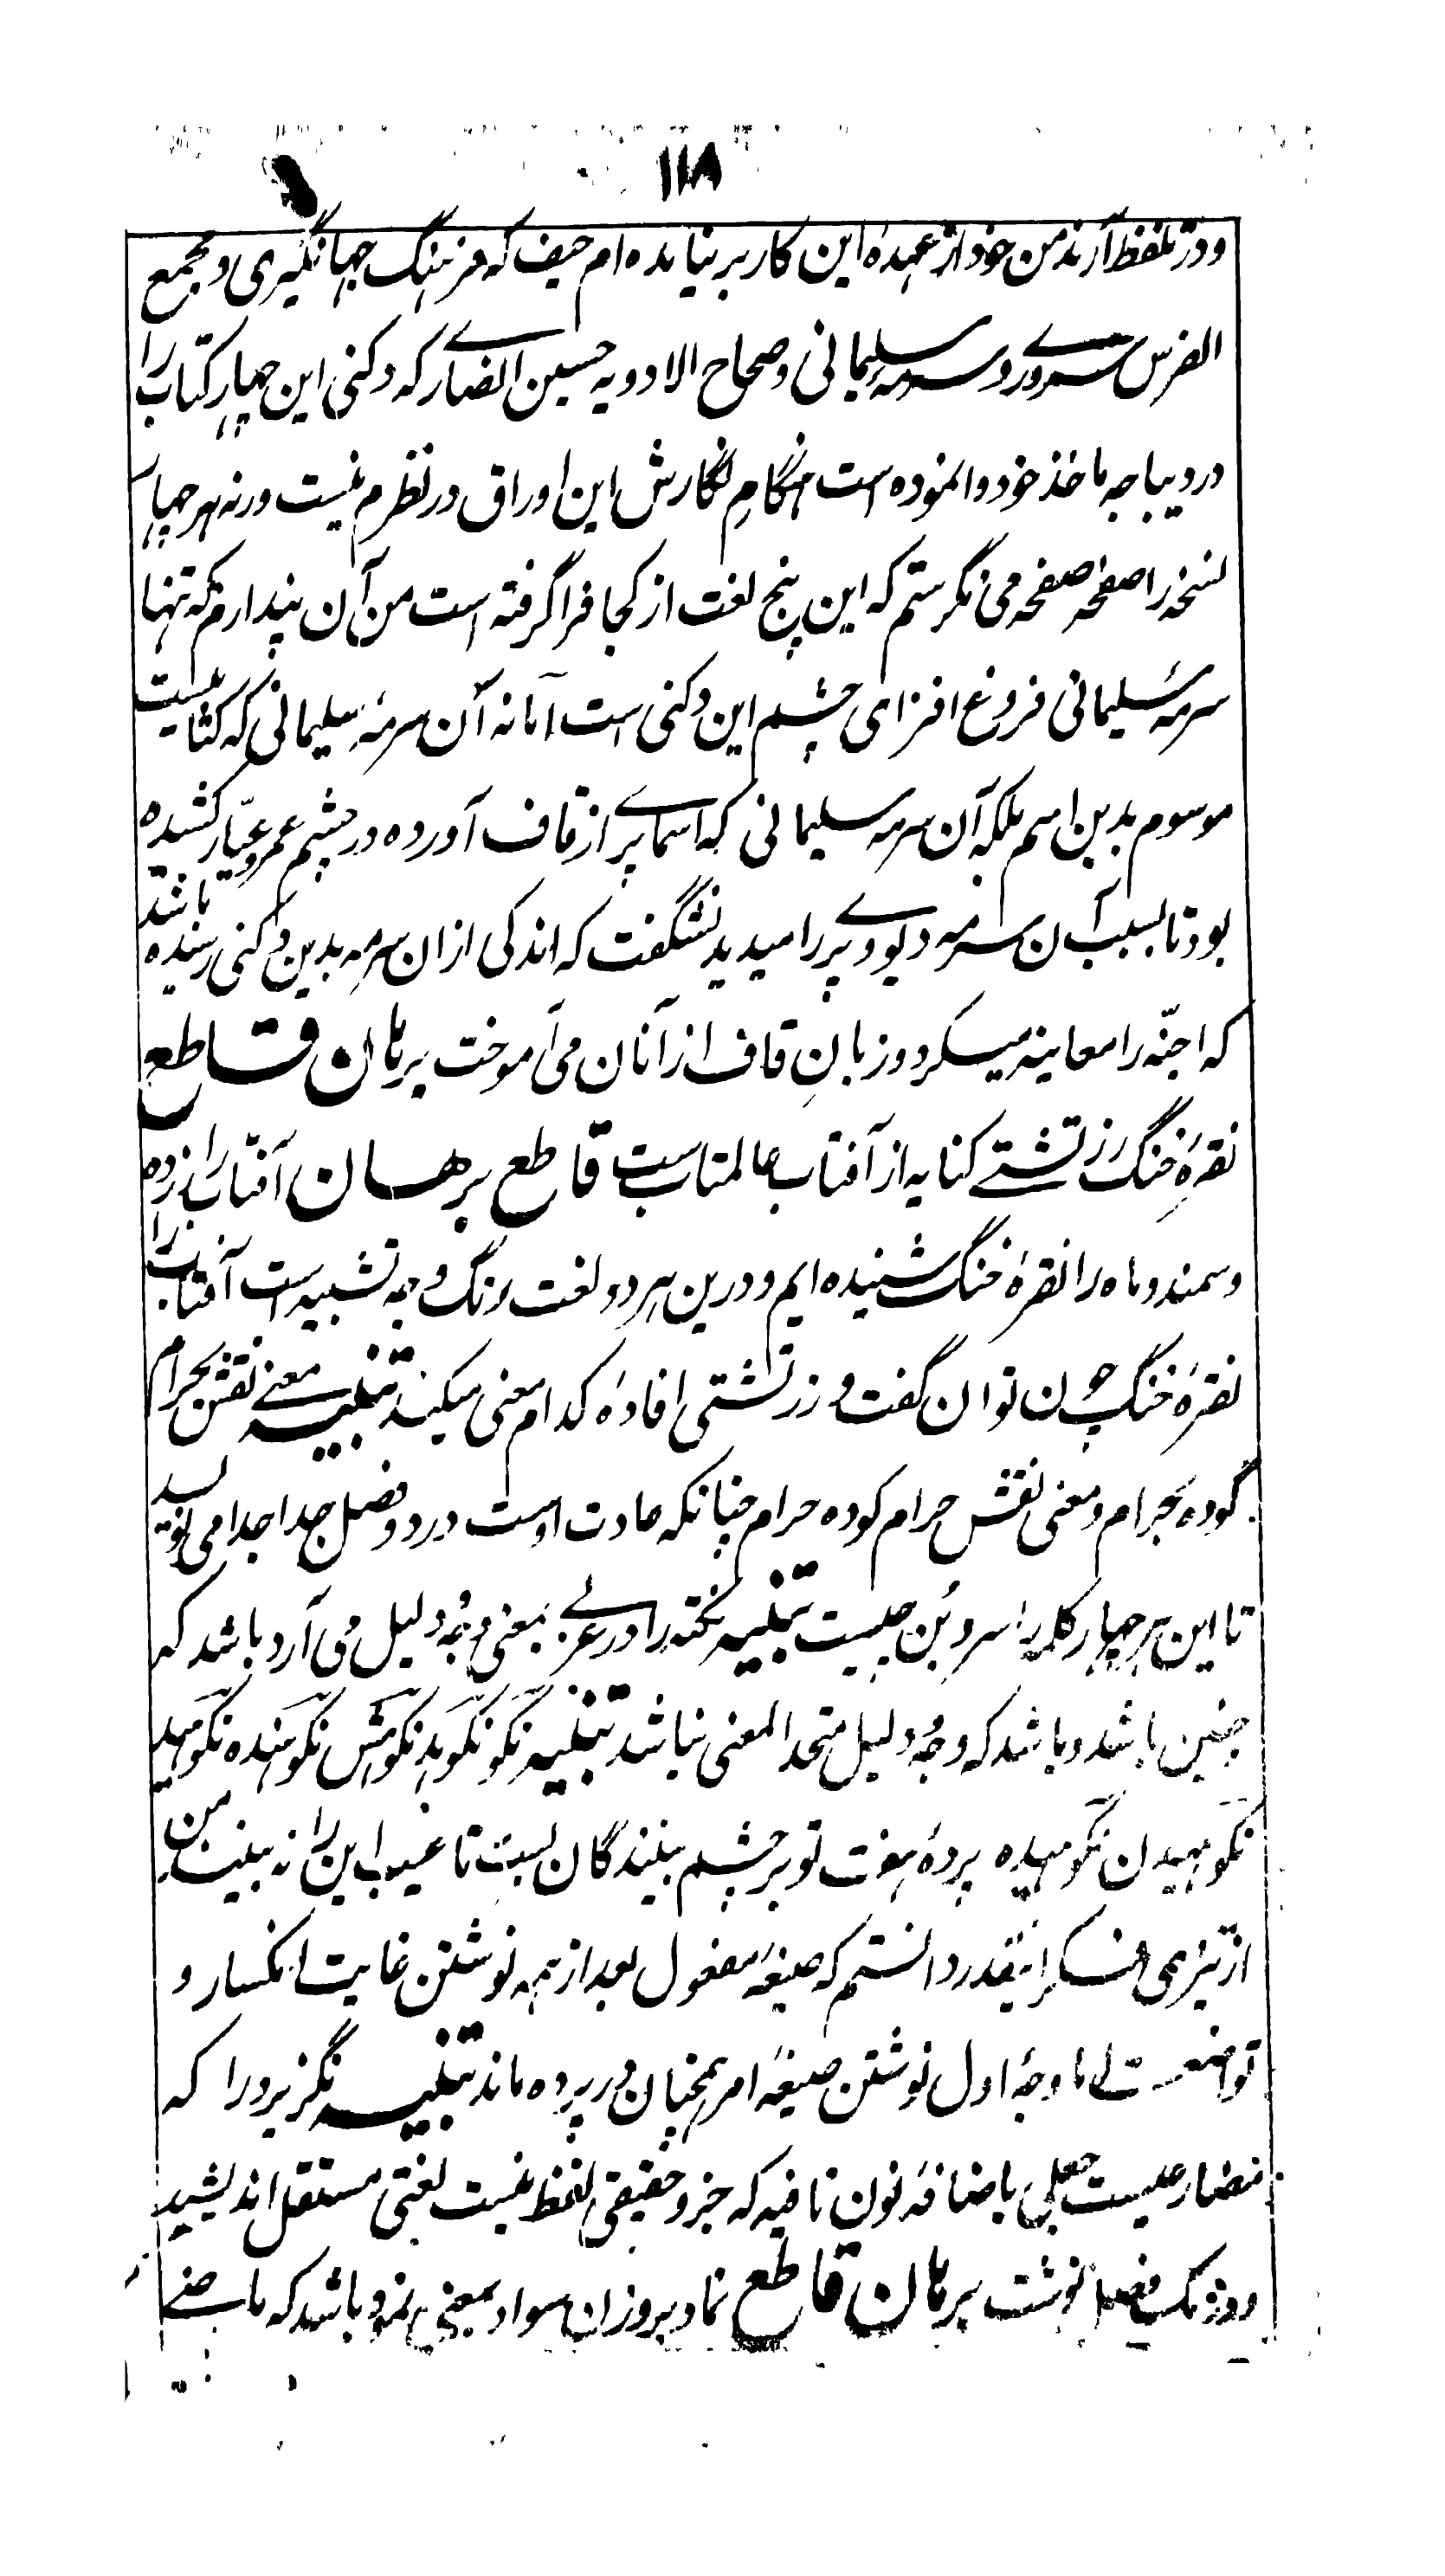 ۱۱۸
و در تلفظ آرند من خود از عهدهٔ این کار بر نیامده ام حیف که فرهنگ جهانگیری و مجمع
الفرس سروری و سرمهٔ سلیمانی و صحاح الادویه حسین انصاری که دکنی این چهار کتاب را
در دیباجه ماخذ خود وانموده است هنگامِ نگارش این اوراق در نظرم نیست ورنه هر چهار
نسخه را صفحه صفحه می نگرستم که این پنج لغت از کجا فرا گرفته است من آن پندارم که تنها
سرمهٔ سلیمانی فروغ افزای چشم این دکنی است اما نه آن سرمهٔ سلیمانی که کتابیست
موسوم بدین اسم بلکه آن سرمه سلیمانی که اسمای پری از قاف آورده در چشم عمرو عیّار کشیده
بود تا بسبب آن سرمه دیو و پری را میدید نشگفت که اندکی ازان سرمه بدین دکنی رسیده باشد
که اجنّه را معاینه میکرد و زبانِ قاف از آنان می آموخت برهان قاطع
نقرهٔ خنگ زرتشتی کنایه از آفتاب عالمتابست قاطع برهان آفتاب را زرده
و سمند و ماه را نقرهٔ خنگ شنیده ایم و درین هر دو لغت رنگ وجه تشبیه است آفتاب را
نقرهٔ خنگ چون توان گفت و زرتشتی افادهٔ کدام معنی میکند تنبیه معنی نقش بحرام
گوده بحرام و معنی نقش حرام کوده حرام چنانکه عادت اوست در دو فصل جدا جدا می نویسد
تا این هر چهار کلمه را سر و بُن چیست تنبیه نکته را در عربی بمعنی وجه دلیل می آرد باشد که
چنین باشد و باشد که وجه و دلیل متحد المعنی نباشد تنبیه نکو نکوهد نکوهش نکوهنده نکوهید
نکوهیدن نکوهیده پردهٔ هفت تو بر چشم بینندگان بست تا عیب این را نه بینند من
از تیزی فکر اینقدر دانستم که صیغهٔ مفعول بعد از همه نوشتن غایت انکسار و
تواضعست اما وجهٔ اول نوشتن صیغهٔ امر همچنان در پرده ماند تنبیه نگزیرد را که
مضارعیست جعلی باضافهٔ نون نافیه که جزو حقیقی لفظ نیست لغتی مستقل اندیشید
و در یک فصل نوشت برهان قاطع نماد بروزن سواد بمعنی نمود باشد که ماضی